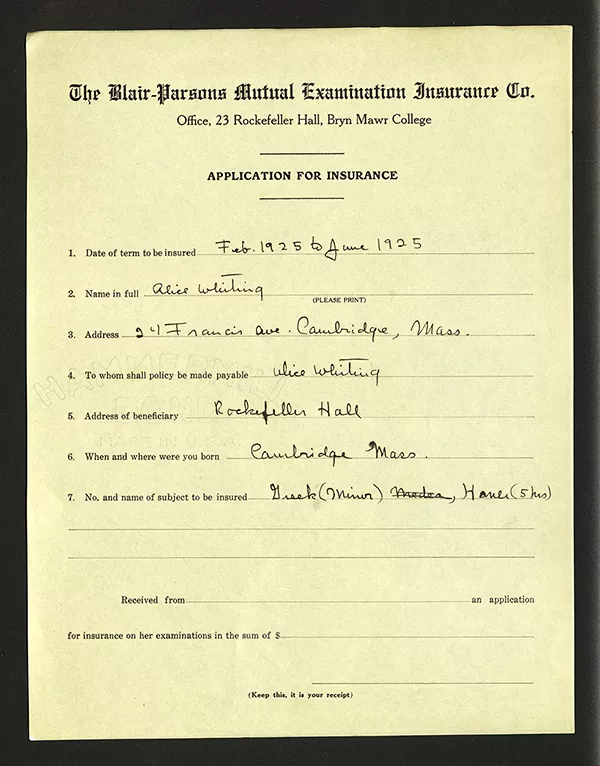 The Blair-Parsons Mutual Examination Insurance Co.
Office, 23 Rockefeller Hall, Bryn Mawr College
APPLICATION FOR INSURANCE
1. Date of term to be insured Feb. 1925 to June 1925
2. Name in full Alice Whiting
(PLEASE PRINT)
3. Address Francis Ave. Cambridge, Mass.
4. To whom shall policy be made payable Alice Whiting
5. Address of beneficiary Rockefeller Hall
6. When and where were you born Cambridge Mass.
7. No. and name of subject to be insured Greek (Minor) Medea, (5 hrs)
Received from an application
for insurance on her examinations in the sum of $
(Keep this, it is your receipt)